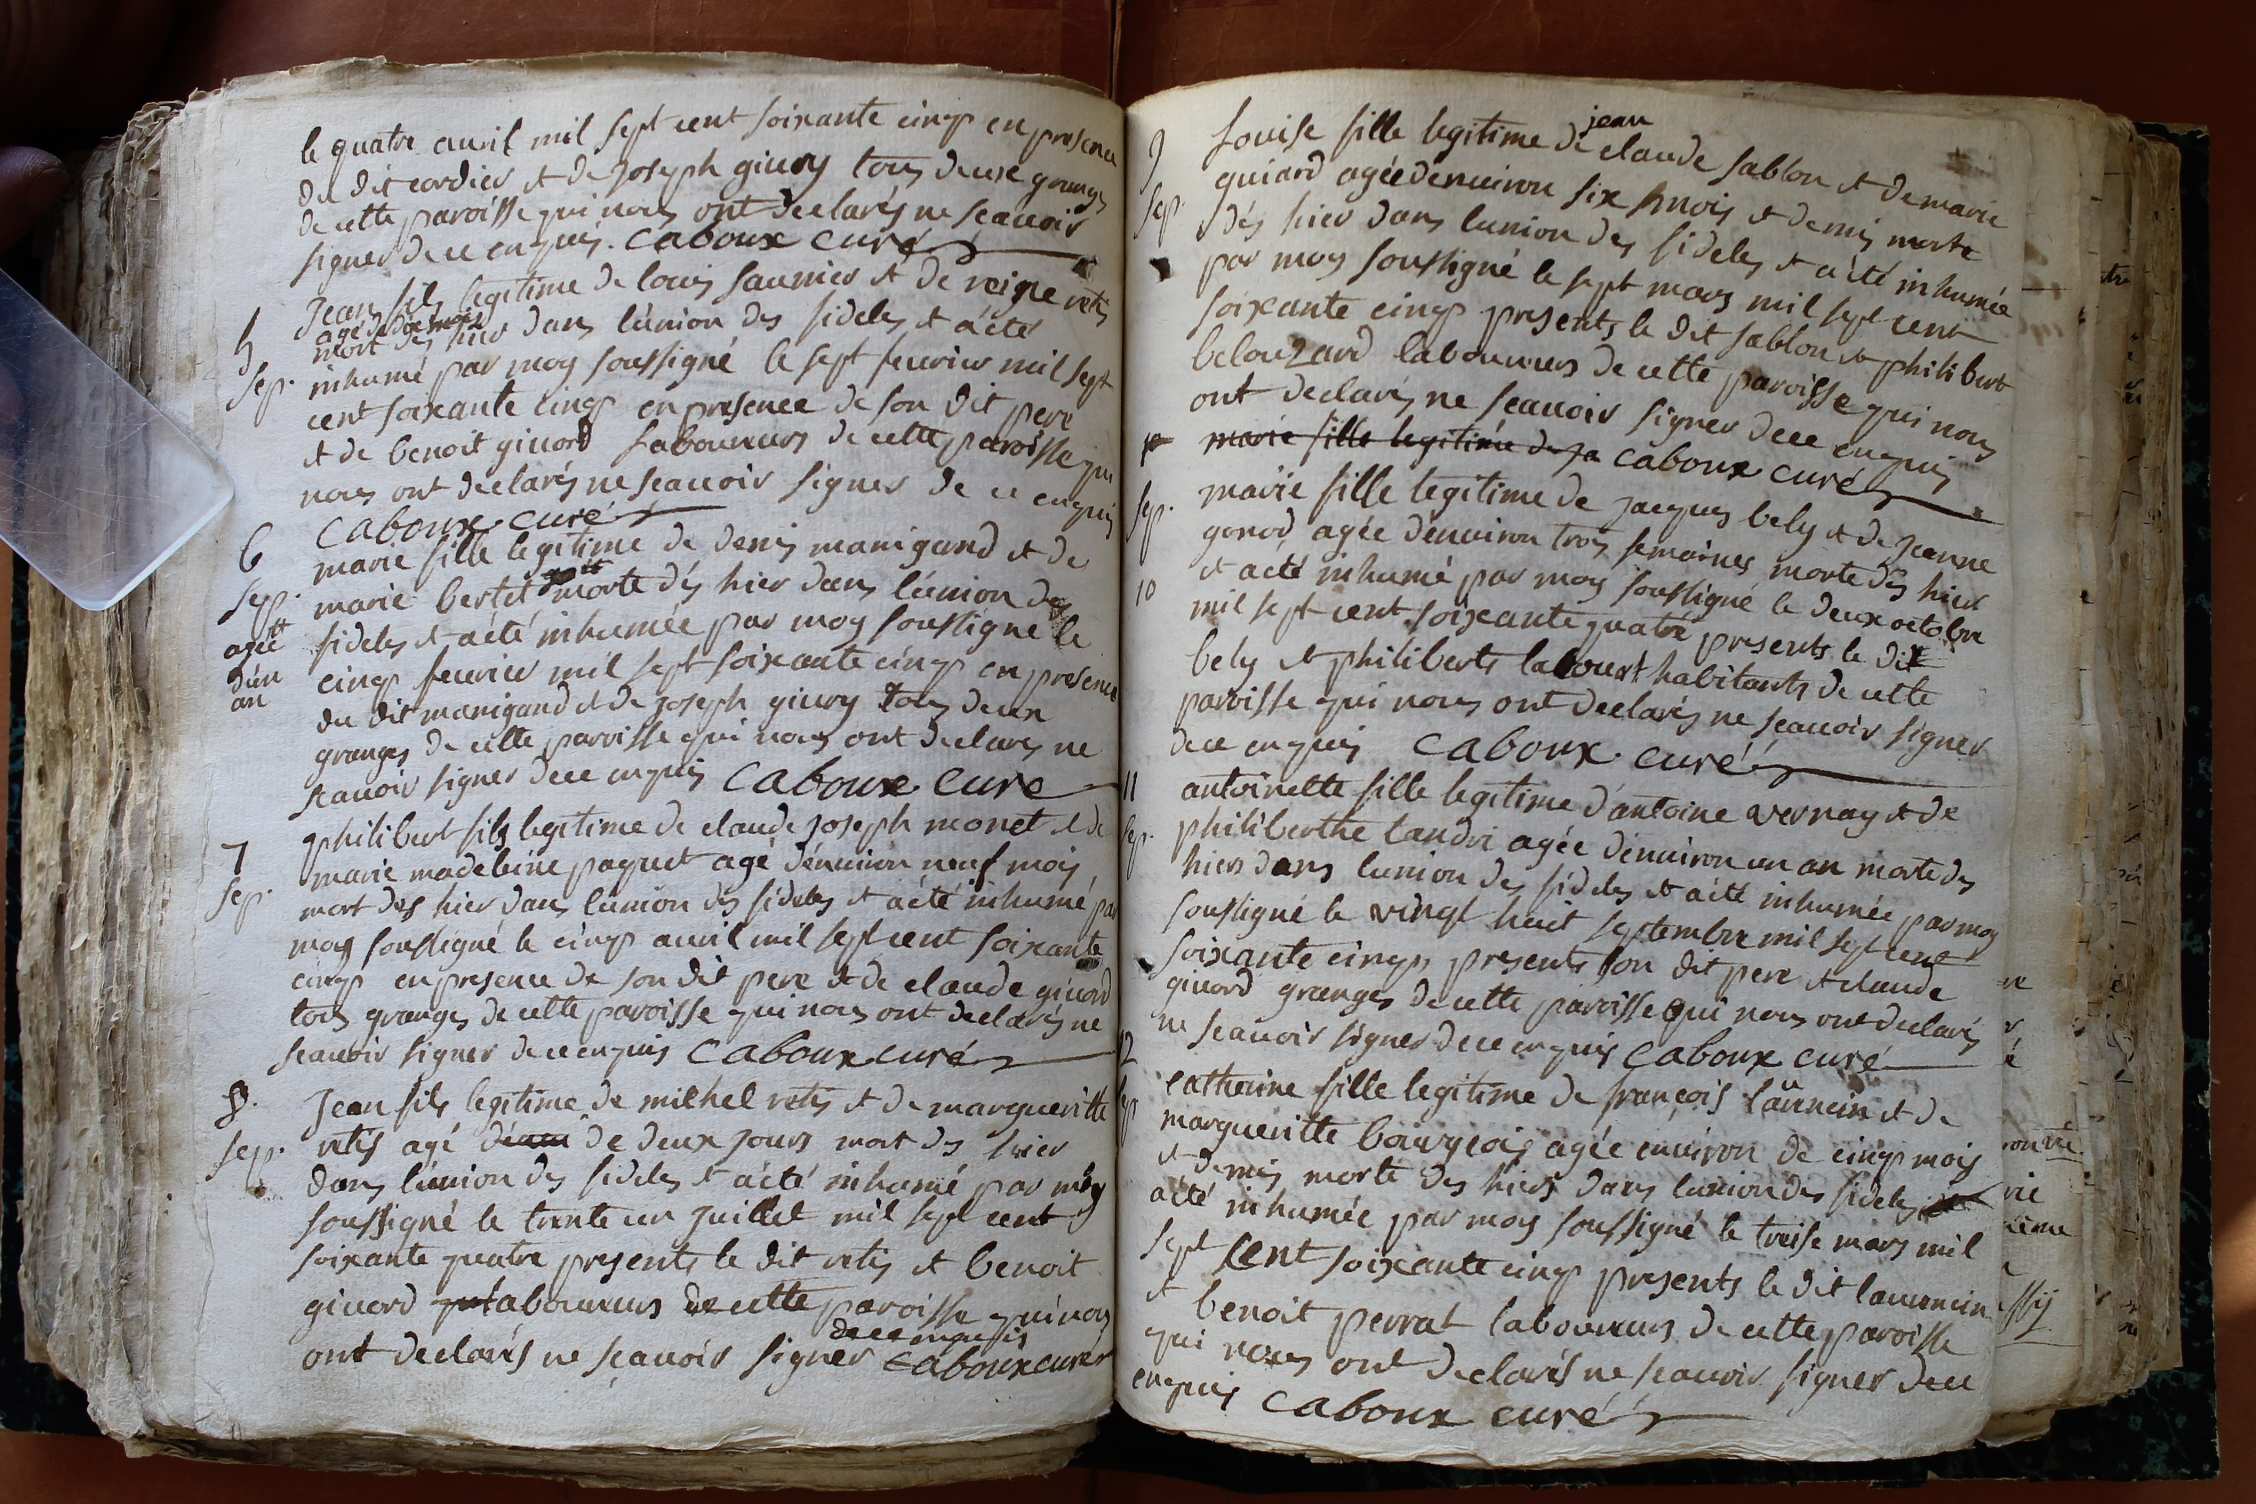 le quatre auril mil sept cent soixante cinq en presence
du dit cordier et de joseph giury tous deux granges
de cette paroisse qui nous ont declarés ne scauoir
signer de ce enquis. caboux curé
5
Sep.
Jean fils legitime de louis saumier et de reine retis
agé de dix mois
mort dés hier dans l'union des fideles et a été
inhumé par moy soussigné le sept feurier mil sept
cent soixante cinq en presence de son dit pere
et de benoit giuord laboureurs de cette paroisse qui
nous ont declarés ne scauoir signer de ce enquis
caboux curé
6
Sep.
agée
d'un
an
marie fille legitime de denis manigand et de
marie bertet morte dés hier dans l'union des
fideles et a été inhumée par moy soussigné le
cinq feurier mil sept soixante cinq en presence
du dit manigand et de joseph giury tous deux
granges de cette paroisse qui nous ont declarés ne
scauoir signer de ce enquis caboux curé
7
Sep.
philibert fils legitime de claude joseph monet et de
marie madeleine paquet agé d'enuiron neuf mois
mort des hier dans l'union des fideles et a été inhumé par
moy soussigné le cinq auril mil sept cent soixante
cinq en presence de son dit pere et de claude giuord
tous granges de cette paroisse qui nous ont declarés ne
scauoir signer de ce enquis caboux curé
8.
Sep.
Jean fils legitime de michel retis et de margueritte
retis agé de deux jours mort des hier
dans l'union des fideles et a été inhumé par moy
soussigné le trente un juillet mil sept cent
soixante quatre presents le dit retis et benoit
giuord laboureurs de cette paroisse qui nous
ont declarés ne scauoir signer de ce enquis
caboux curé
9
Sep.
Louise fille legitime de jean claude sablon et de marie
guiard agée denuiron six mois et demis morte
dés hier dans lunion des fideles et a été inhumée
par moy soussigné le sept mars mil sept cent
soixante cinq presents le dit sablon et philibert
belouzard laboureurs de cette paroisse qui nous
ont declarés ne scauoir signer de ce enquis
marie fille legitime de ja caboux curé
Sep.
10
marie fille legitime de jacques bely et de jeanne
gonod agée d'enuiron trois semaines morte dés hier
et a été inhumé par moy soussigné le deux octobre
mil sept cent soixante quatre presents le dit
bely et philiberts labourt habitants de cette
paroisse qui nous ont declarés ne scauoir signer
de ce enquis caboux curé
11
Sep.
antoinette fille legitime d'antoine vernay et de
philiberthe tandri agée d'enuiron un an morte des
hier dans lunion des fideles et a été inhumée par moy
soussigné le vingt huit septembre mil sept cent
soixante cinq presents son dit pere et claude
giuord granges de cette paroisse qui nous ont declarés
ne scauoir signer de ce enquis caboux curé
12
Sep
catherine fille legitime de françois laurencin et de
margueritte bourgeois agée enuiron de cinq mois
et demis morte des hier dans lunion des fideles
a été inhumée par moy soussigné le treise mars mil
sept cent soixante cinq presents le dit laurencin
et benoit perrat laboureurs de cette paroisse
qui nous ont declarés ne scauoir signer de ce
enquis caboux curé